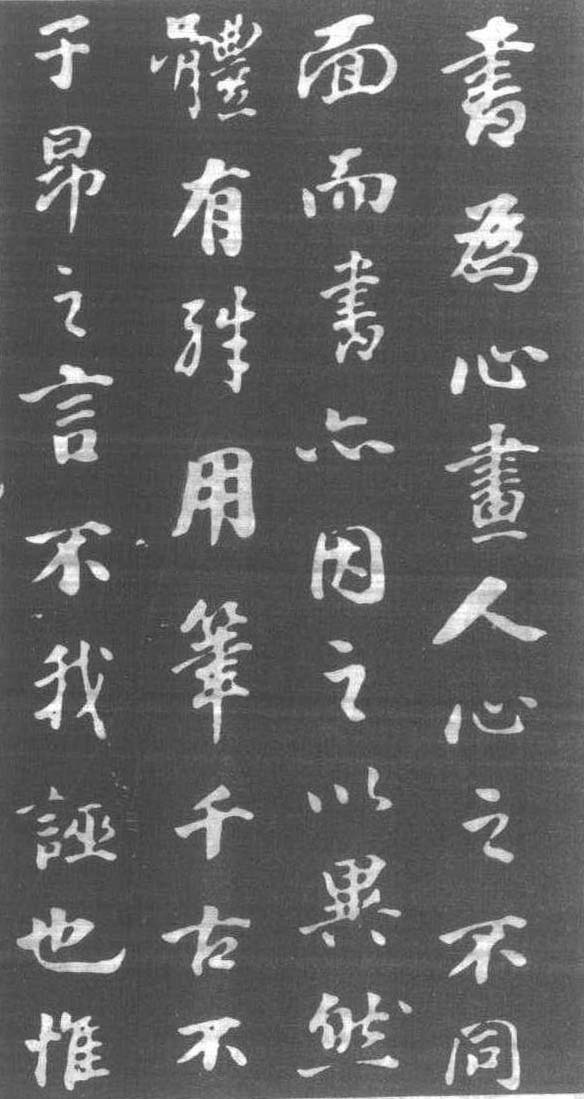 書為心畫人心之不同
面而書亦因之以異然
體有殊用筆千古不
子昂之言不我誣也惟